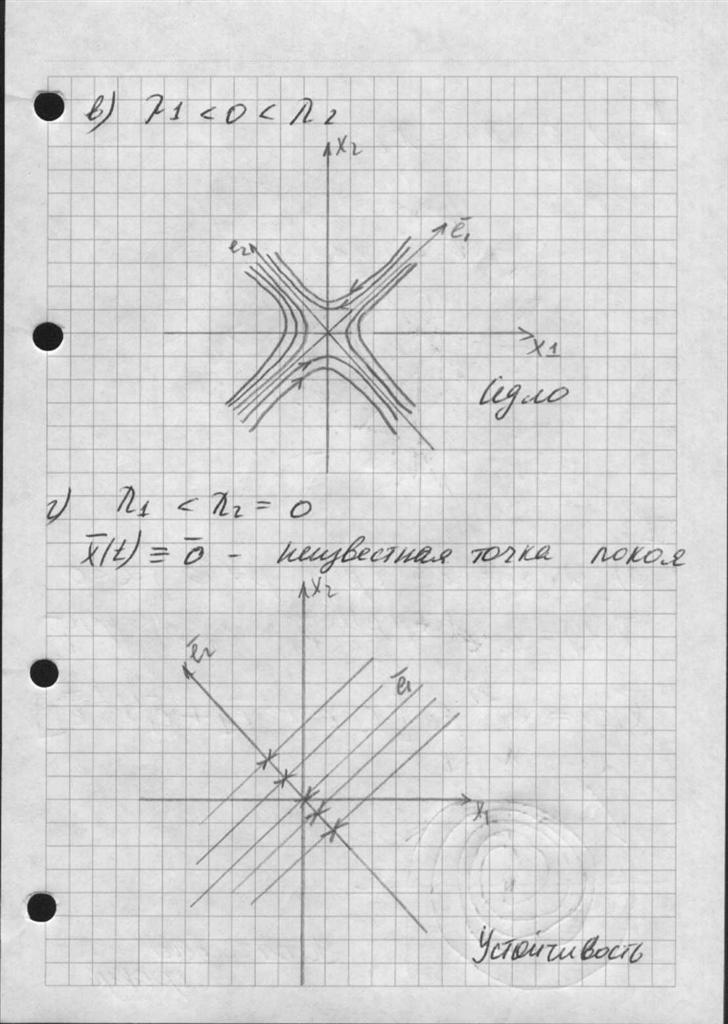 в) λ1 < 0 < λ2
x2
e̅1
e2
x1
Седло
г) λ1 < λ2 = 0
x̅(t) ≡ 0̅ - неизвестная точка покоя
x2
e̅2
e̅1
x1
Устойчивость